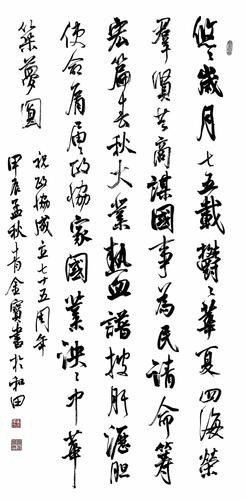 悠々歲月七五載欝々華夏四海榮
羣賢共商謀國事為民請命籌
宏篇春秋大業熱血譜披肝瀝膽
使命肩政協家國業泱々中華
築夢圓
祝政協成立七十五周年
甲辰孟秋肖金寶書於和田